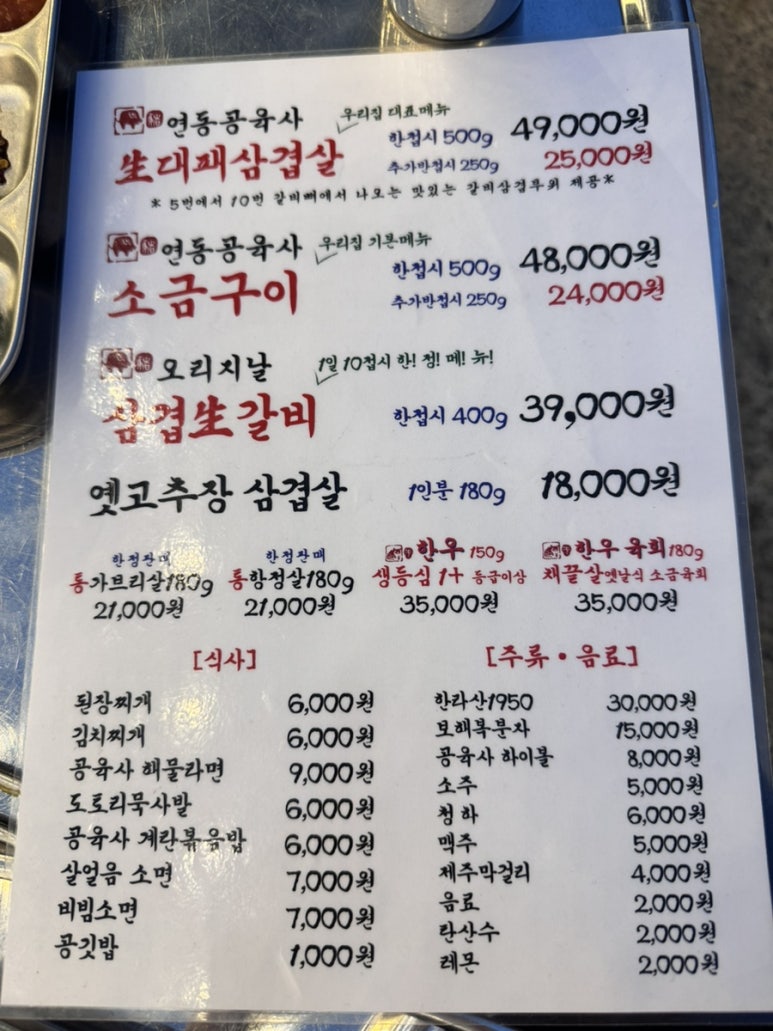 연동공육사 우리집 대표메뉴
生대패삼겹살 한접시 500g 49,000원
추가반접시 250g 25,000원
* 5번에서 10번 갈비뼈에서 나오는 맛있는 갈비삼겹부위 제공 *
연동공육사 우리집 기본메뉴
소금구이 한접시 500g 48,000원
추가반접시 250g 24,000원
오리지날 1일 10접시 한! 정! 메! 뉴!
삼겹生갈비 한접시 400g 39,000원
옛고추장 삼겹살 1인분 180g 18,000원
한정판매
통가브리살180g
21,000원
한정판매
통항정살180g
21,000원
한우 150g
생등심 1+ 등급이상
35,000원
한우 육회 180g
채끝살옛날식 소금육회
35,000원
[식사]
된장찌개 6,000원
김치찌개 6,000원
공육사 해물라면 9,000원
도토리묵사발 6,000원
공육사 계란볶음밥 6,000원
살얼음 소면 7,000원
비빔소면 7,000원
공깃밥 1,000원
[주류・음료]
한라산1950 30,000원
보해복분자 15,000원
공육사 하이볼 8,000원
소주 5,000원
청하 6,000원
맥주 5,000원
제주막걸리 4,000원
음료 2,000원
탄산수 2,000원
레몬 2,000원